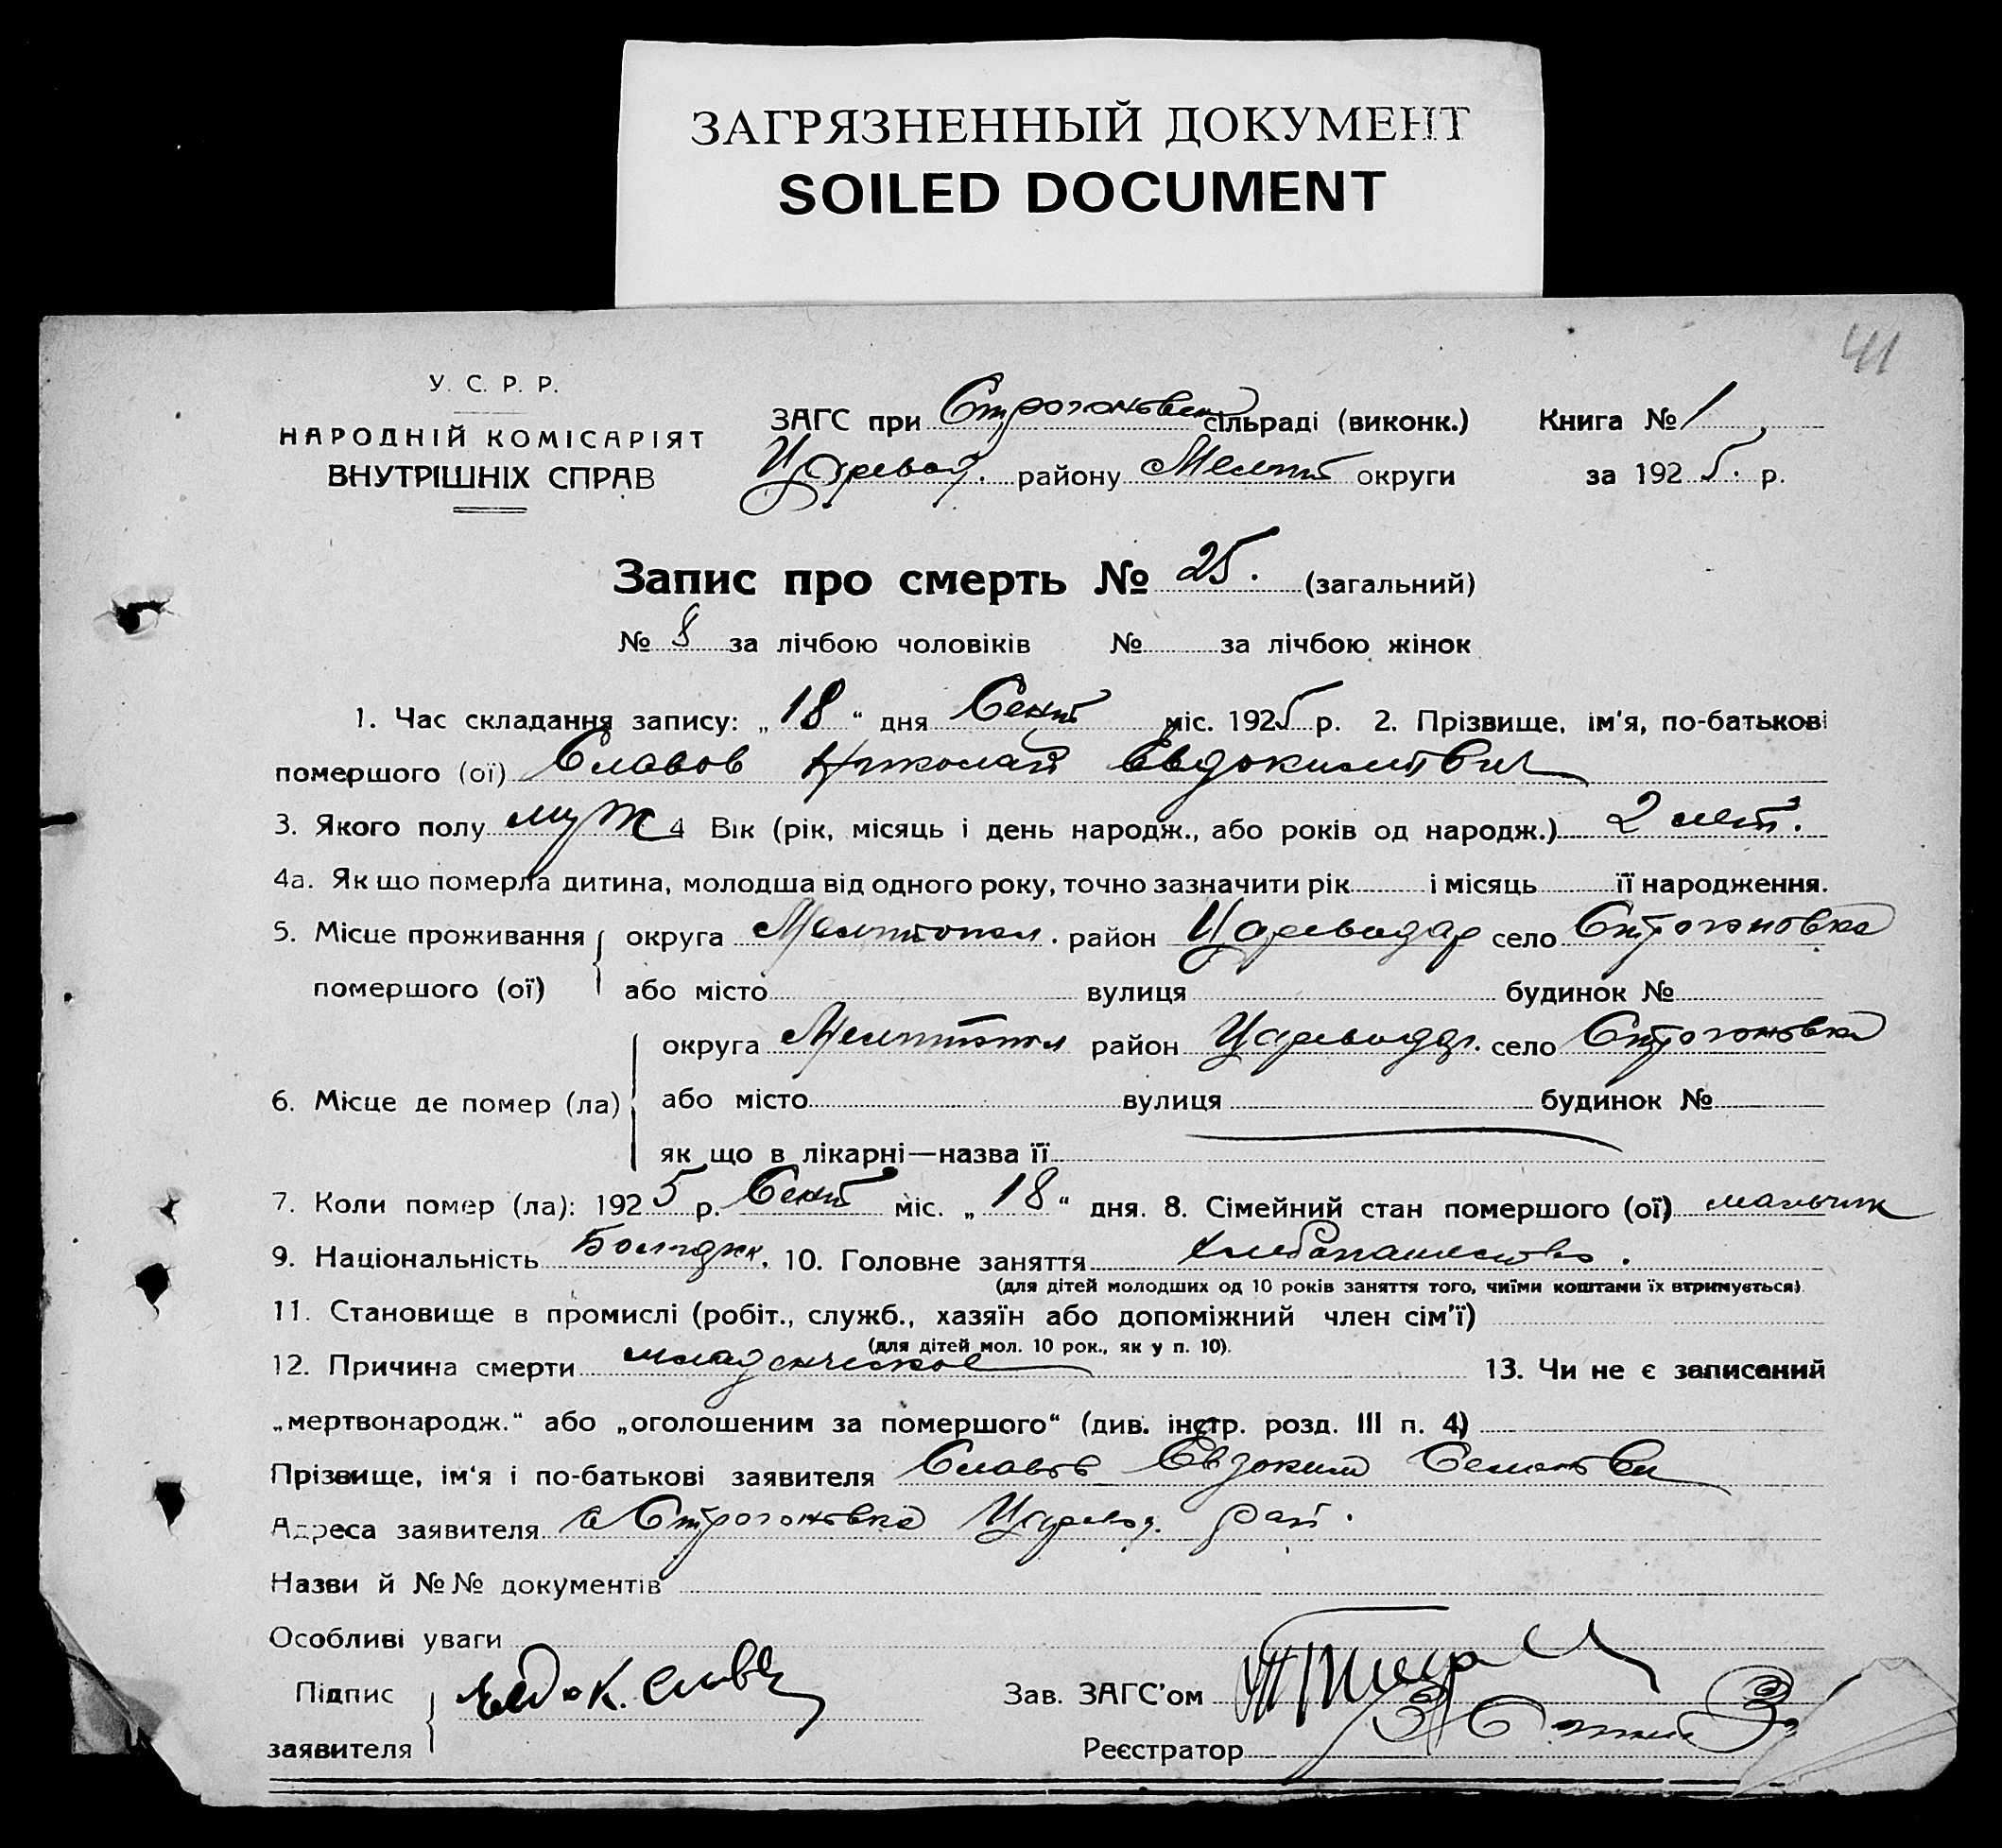 ЗАГРЯЗНЕННЫЙ ДОКУМЕНТ
SOILED DOCUMENT
41
У. С. Р. Р.
НАРОДНІЙ КОМІСАРІЯТ
ВНУТРІШНІХ СПРАВ
ЗАГС при Строгоновск сільраді (виконк.) Книга № 1
Царевод. району Мелит округи за 1925. р.
Запис про смерть № 25. (загальний)
№ 8 за лічбою чоловіків № за лічбою жінок
1. Час складання запису: „18“ дня Сент міс. 1925 р. 2. Прізвище, ім'я, по-батькові
помершого (ої) Славов Николай Евдокимович
3. Якого полу муж 4 Вік (рік, місяць і день народж., або років од народж.) 2 лет.
4а. Як що померла дитина, молодша від одного року, точно зазначити рік і місяць її народження.
5. Місце проживання помершого (ої) округа Мелитопол. район Цареводар село Строгоновка
або місто вулиця будинок №
6. Місце де помер (ла) округа Мелитопол район Цареводар. село Строгоновка
або місто вулиця будинок №
як що в лікарні—назва її
7. Коли помер (ла): 1925 р. Сент міс. „18“ дня. 8. Сімейний стан помершого (ої) мальчик
9. Національність 10. Головне заняття хлебопашество.
(для дітей молодших од 10 років заняття того, чиїми коштами їх втримується)
11. Становище в промислі (робіт., служб., хазяїн або допоміжний член сім'ї)
(для дітей мол. 10 рок., як у п. 10).
12. Причина смерти младенческое 13. Чи не є записаний
„мертвонародж.“ або „оголошеним за помершого“ (див. інстр. розд. III п. 4)
Прізвище, ім'я і по-батькові заявителя Славов Евдоким Семенови
Адреса заявителя с Строгоновка Царевод. рай.
Назви й №№ документів
Особливі уваги
Підпис заявителя Евдок. Славов
Зав. ЗАГС'ом
Реєстратор